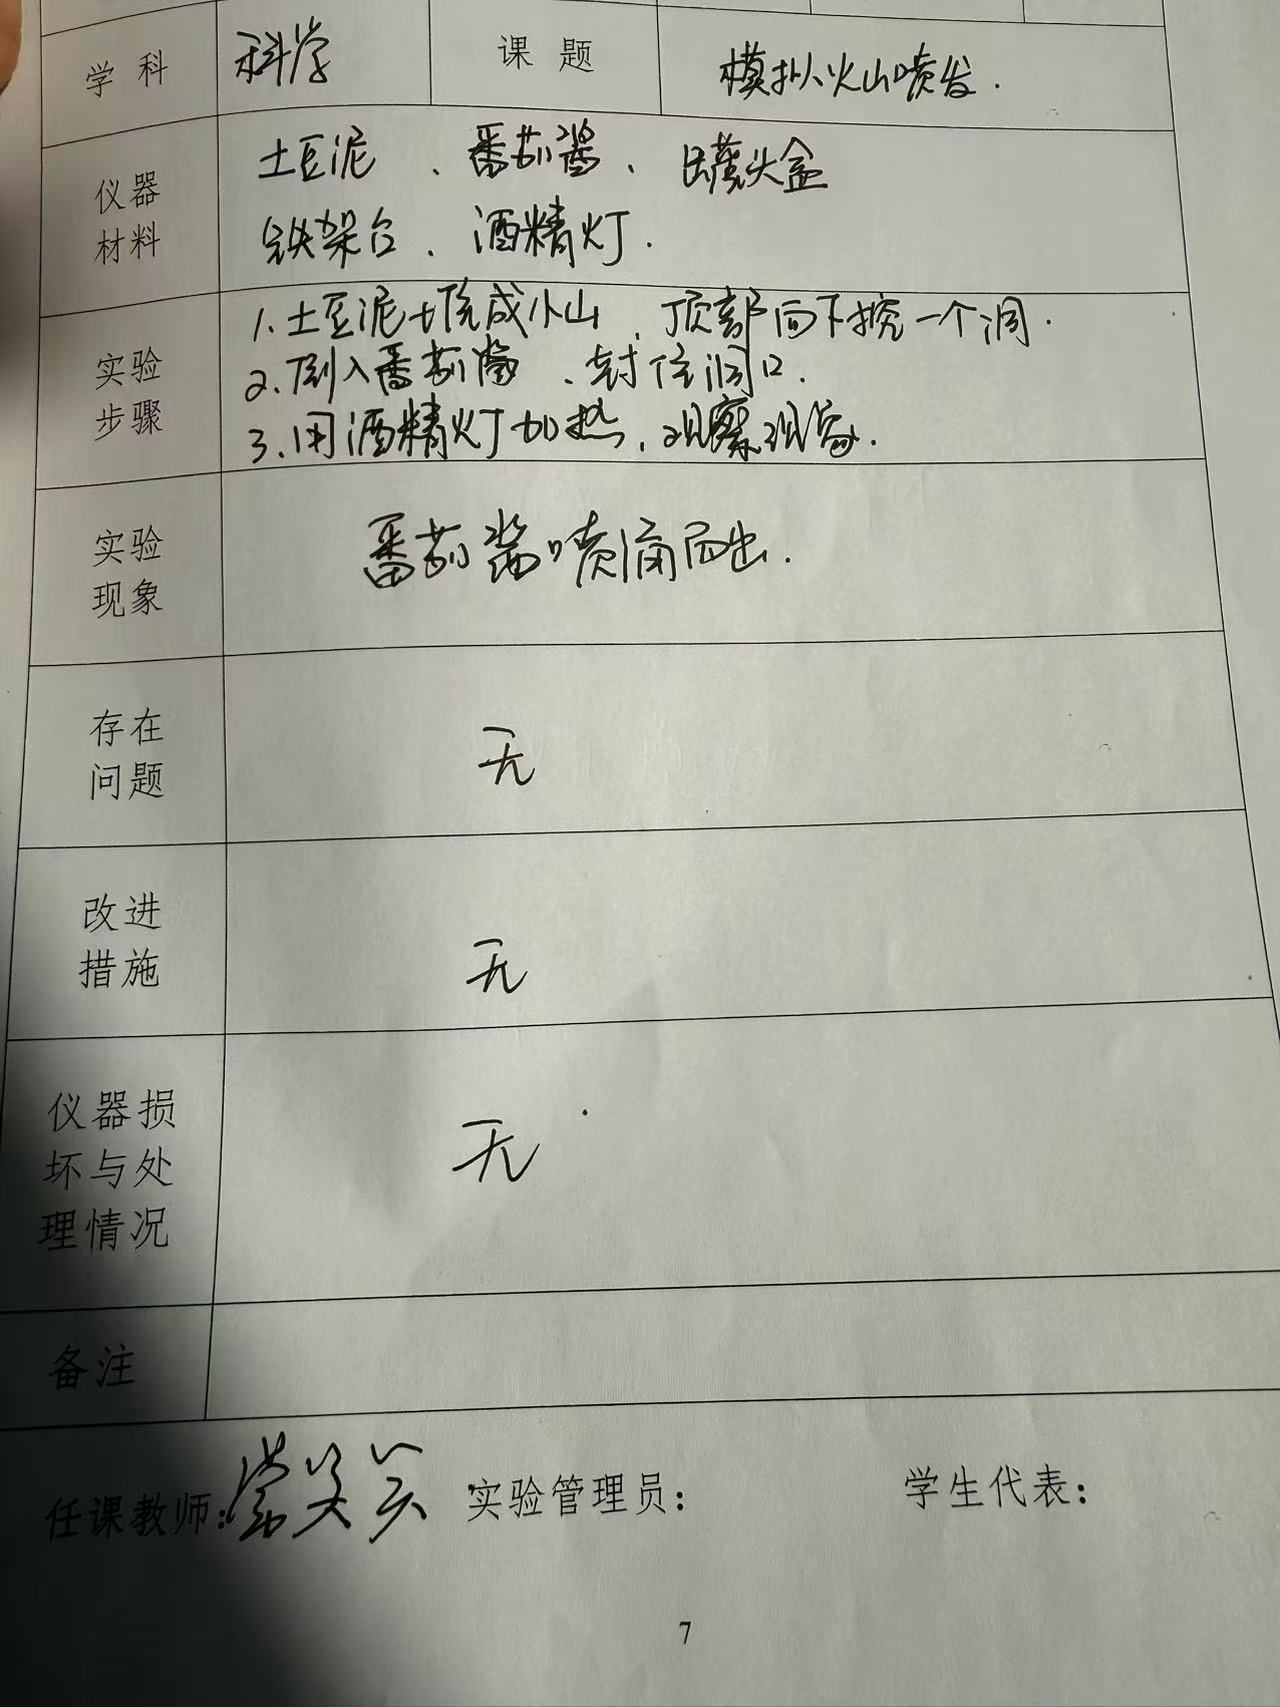 学科 科学 课题 模拟火山喷发.
仪器
材料
土豆泥、番茄酱、罐头盒
铁架台、酒精灯.
实验
步骤
1.土豆泥堆成小山、顶部向下挖一个洞.
2.倒入番茄酱、封住洞口.
3.用酒精灯加热,观察现象.
实验
现象
番茄酱喷涌而出.
存在
问题
无
改进
措施
无
仪器损
坏与处
理情况
无
备注
任课教师: 实验管理员: 学生代表:
7